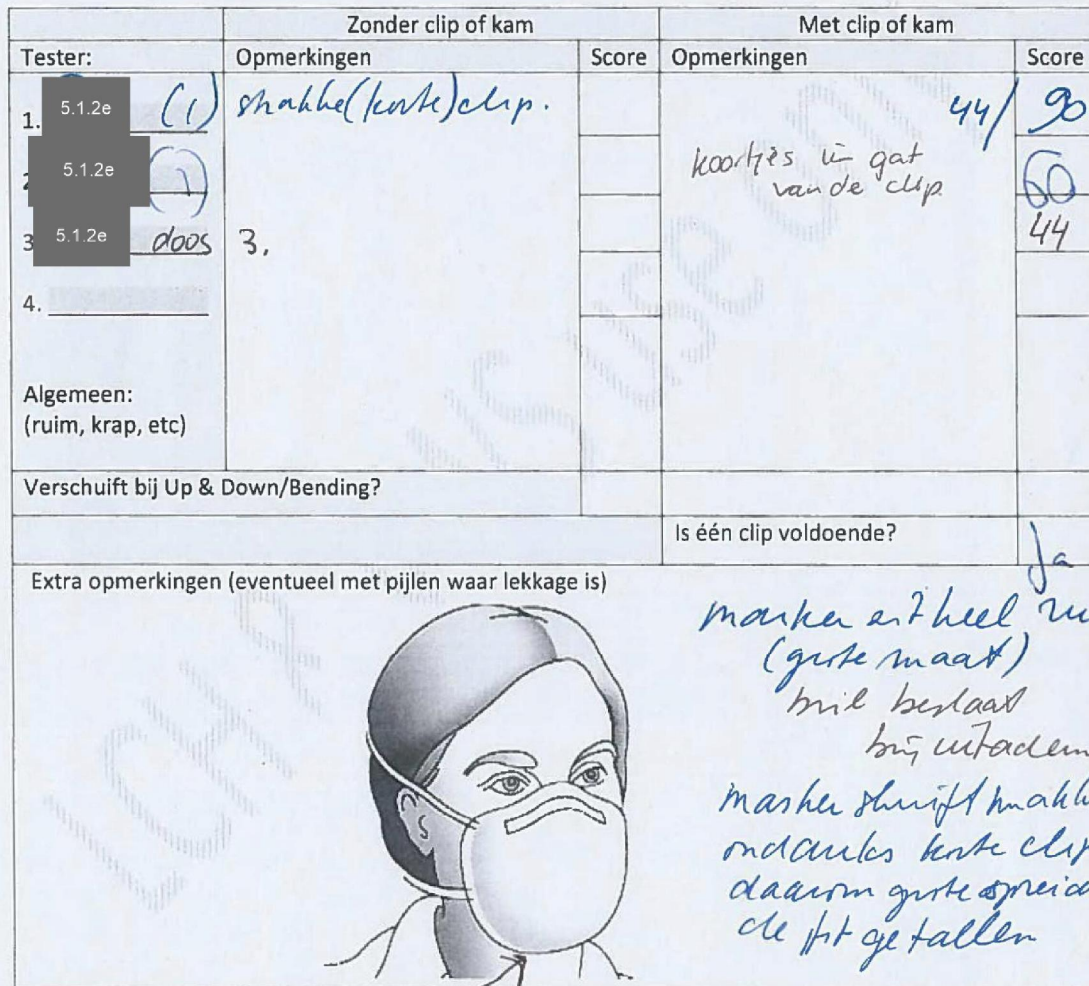 Zonder clip of kam
Met clip of kam
Tester:
Opmerkingen
Score
Opmerkingen
Score
1. 5.1.2e (1)
strakke (korte) clip.
44/ 90
5.1.2e (1)
koortjes in gat
van de clip
60
3 5.1.2e doos
3.
44
4.
Algemeen:
(ruim, krap, etc)
Verschuift bij Up & Down/Bending?
Is één clip voldoende?
Ja
Extra opmerkingen (eventueel met pijlen waar lekkage is)
masker zit heel
(grote maat)
bril beslaat
bij uitadem
masker schuift makk
ondanks korte clip
daarom grote spreid
de fit getallen